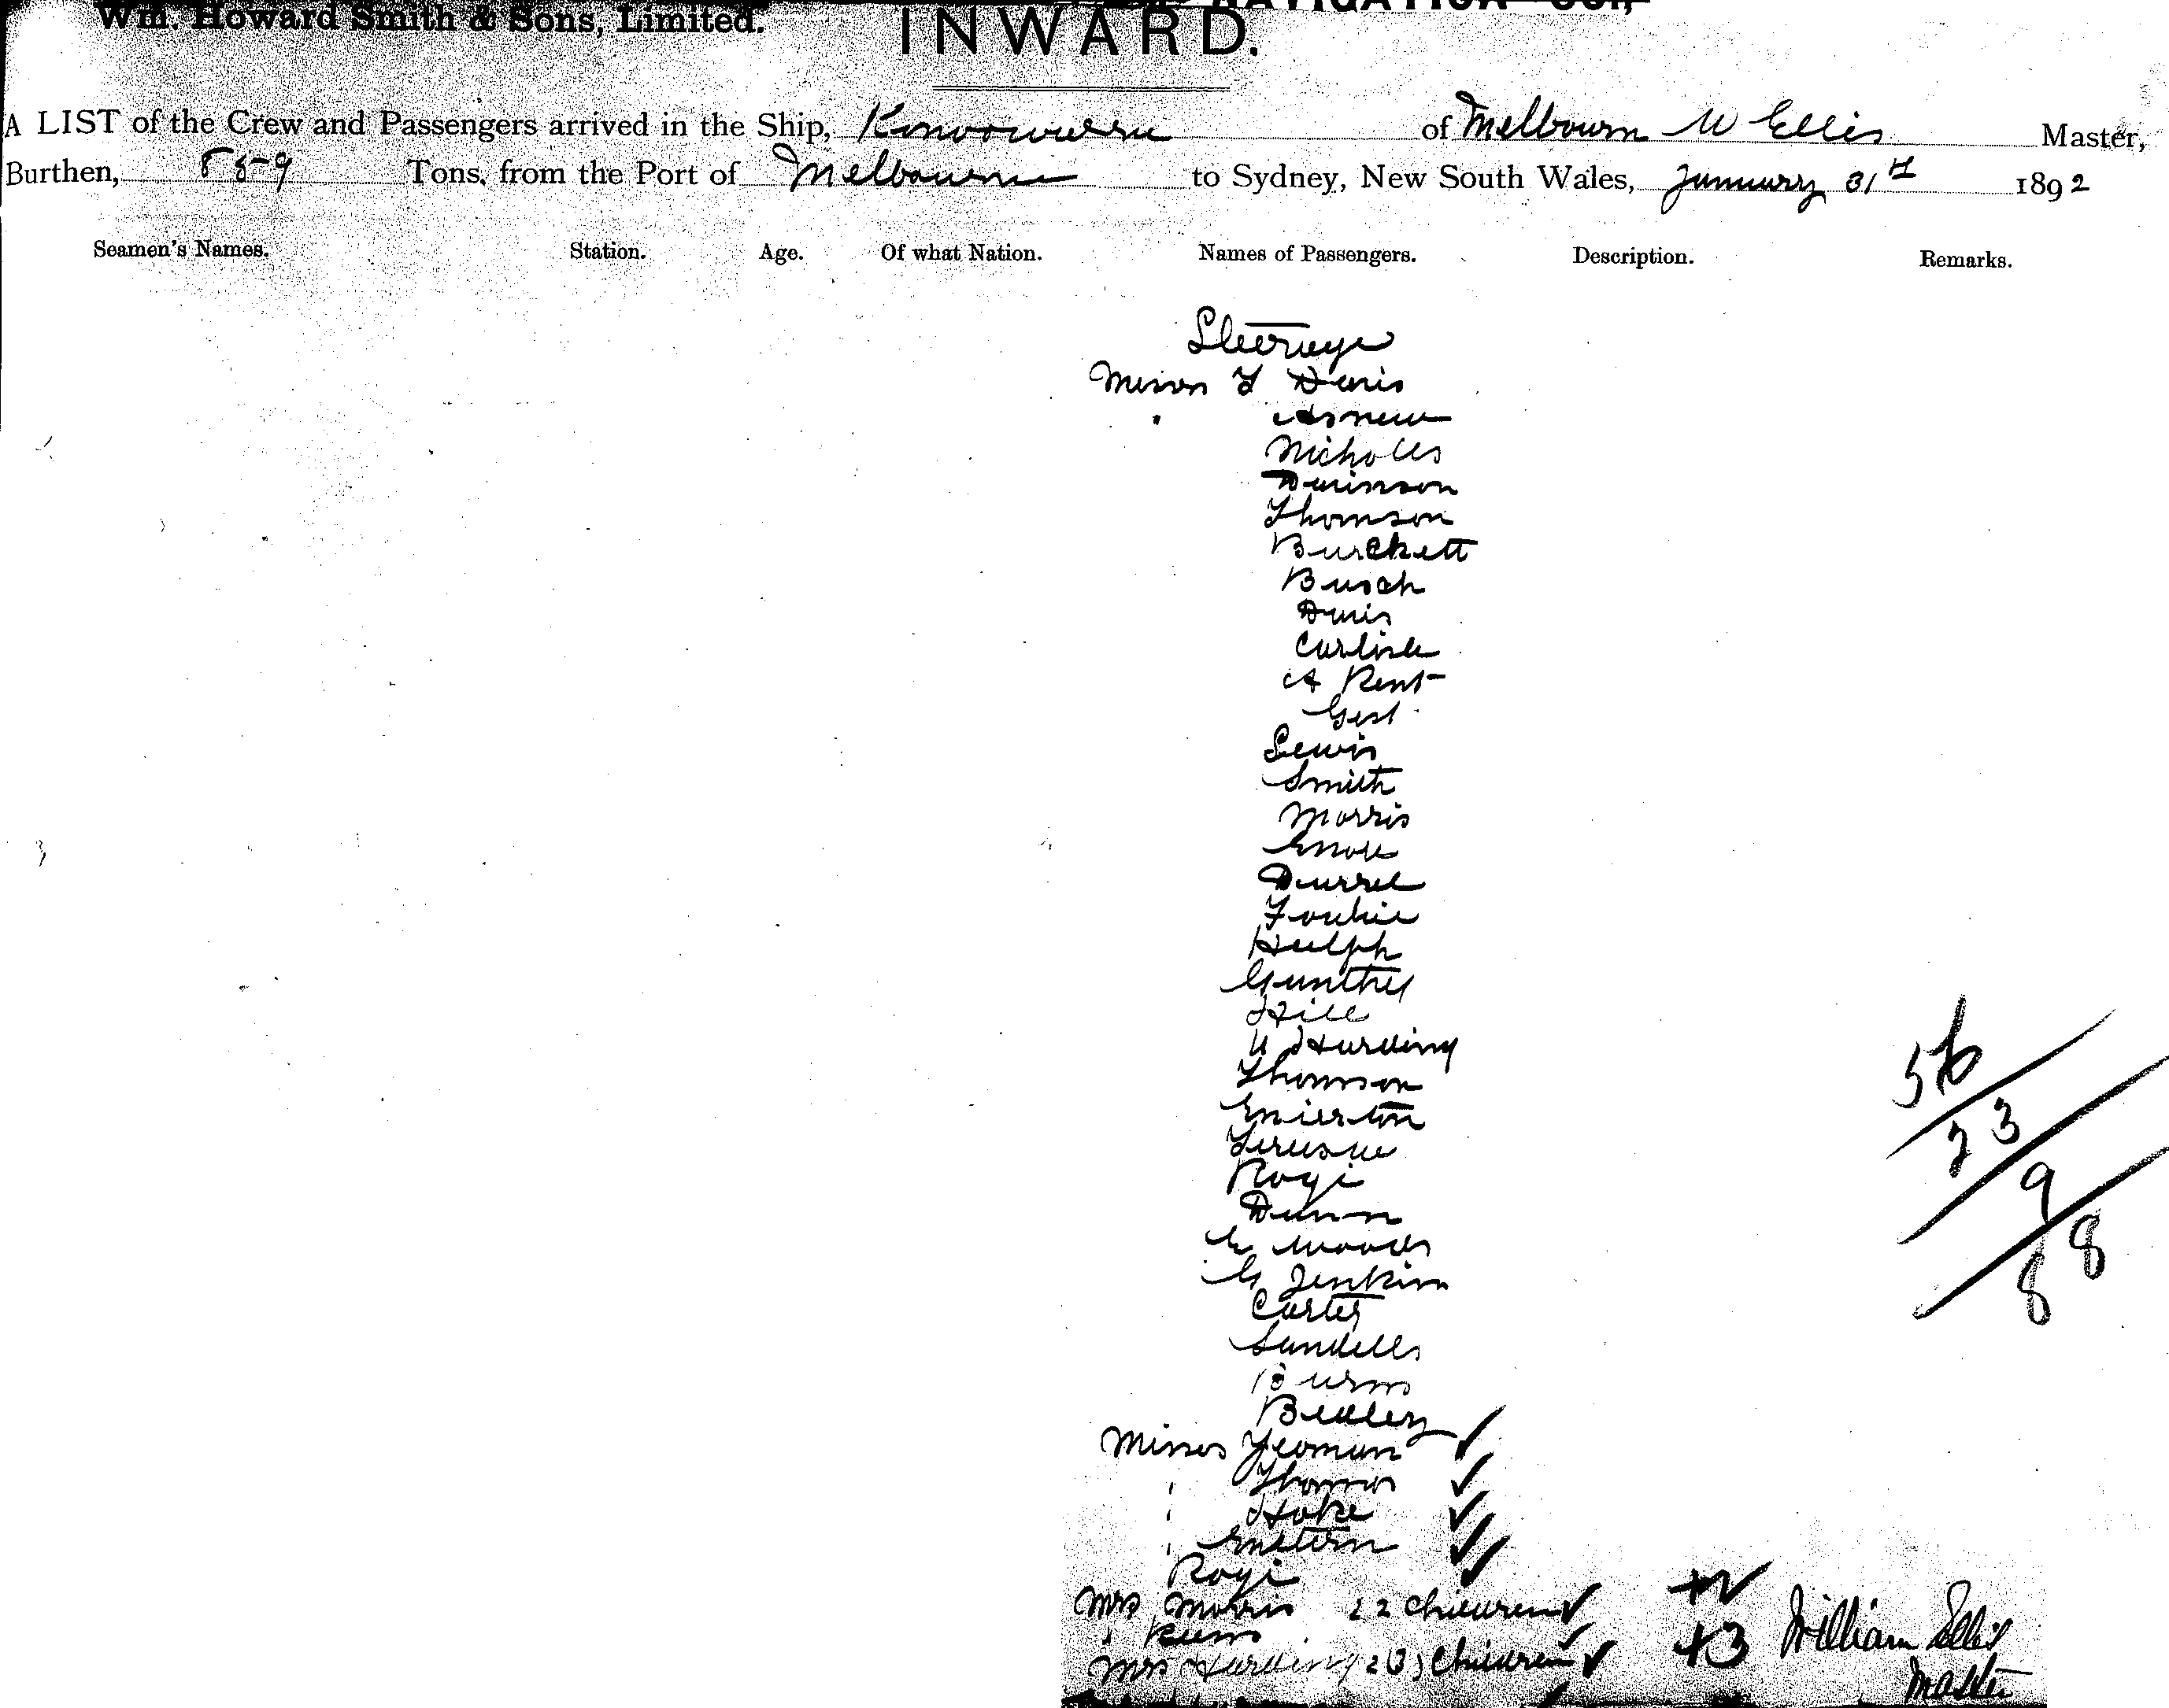 Wm. Howard Smith & Sons, Limited.
NAVIGATION CO.,
INWARD.
A LIST of the Crew and Passengers arrived in the Ship, Konoowarra of Melbourn W Ellis Master,
Burthen, Tons, from the Port of Melbourne to Sydney, New South Wales, January 31st 1892
Seamen's Names. Station. Age. Of what Nation. Names of Passengers. Description. Remarks.
Steerage
Messrs Davis
Nicholls
Thomson
Burckett
Busch
Davis
Carlisle
A Kent
Gest
Lewis
Smith
Morris
Durrel
Hulph
Hill
Harding
Thomson
Rogi
Dunn
E Woods
G Jenkins
Carter
Sandells
Burns
Misses Yeoman
Thomas
Hoke
Eastern
Rogi
Mrs Morris & 2 Children
Mrs Harding & (3) Children
56
23
9
88
+2
+3
William Ellis
Master